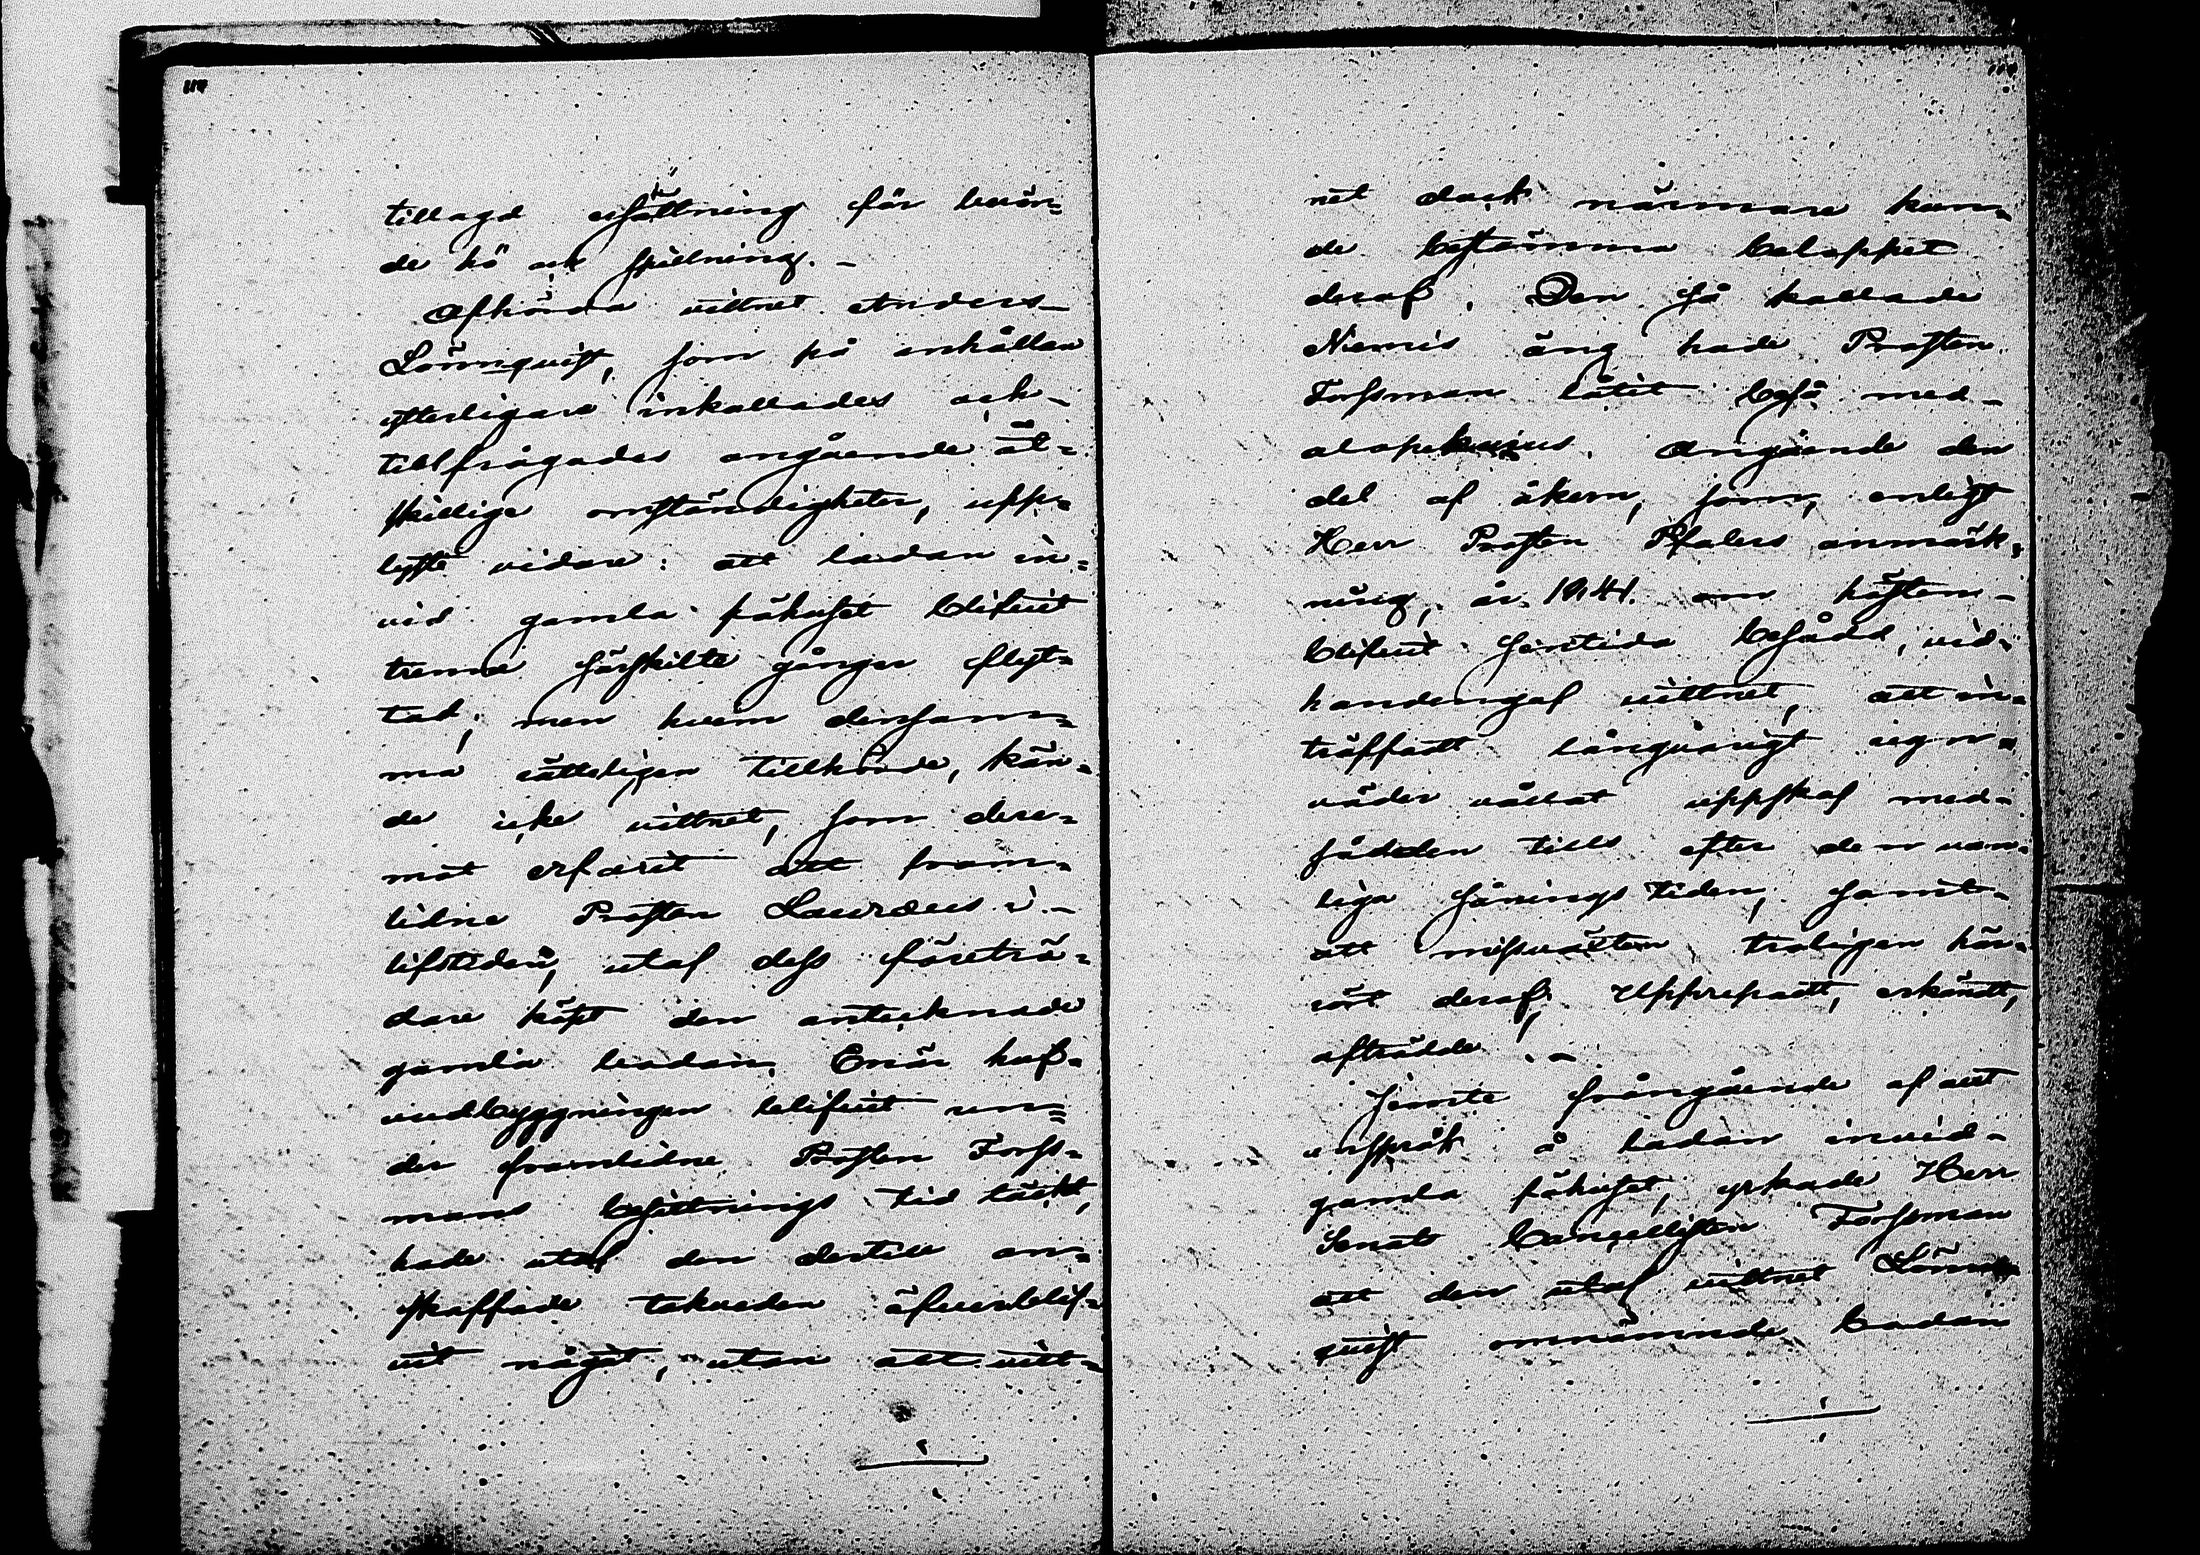 tillagd ersättning för berör-
de hö och spillning. -
Afhörda vittnet Anders
Lönnquist, som på anhållan
ytterligare inkallades och
tillfrågades angående åt-
skillige omständigheter, upp-
lyste vidare: att ladan in-
vid gamla fähuset blifvit
trenne särskilte gånger flyt-
tad; men hvem densam-
ma rätteligen tillhörde, kän-
de icke vittnet, som dere-
mot erfarit att fram-
lidne Prosten Lauræus i
lifstiden, utaf dess företrä-
dare köpt den antecknade
gamla ladan. Enär huf-
vudbyggningen blifvit un-
der framlidne Prosten Forss-
mans besittnings tid täckt,
hade utaf den dertill an-
skaffade takveden äfvenblif-
vit något, utan att vitt-
net dock närmare kun-
de bestämma beloppet
deraf. Den så kallade
Niemis äng hade Prosten
Forssman låtit beså med
alopekurus. Angående den
del af åkern, som, enligt
Herr Prosten Pfalers anmärk-
ning, år 1841 om hösten
blifvit sentida besådd, vid-
handengaf vittnet, att in-
träffadt långvarigt regn-
väder vållat uppskof med
sådden tills efter den van-
liga sånings tiden, samt
att missväxten troligen här-
rört deraf; Upprepadt, erkändt,
afträdde. -
Jemte frångående af allt
anspråk å ladan invid
gamla fähuset, yrkade Herr
Senats Cancellisten Forssman
att den utaf vittnet Lönn-
quist omnämnde ladan